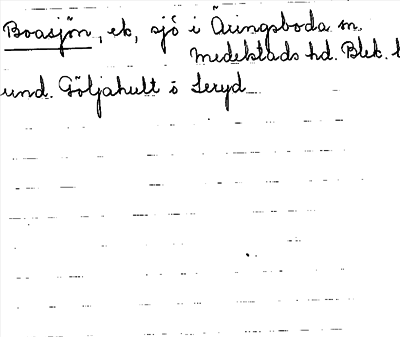 Boasjön, ek, sjö i Äringsboda sn.
Medelstads hd. Blek. l
und. Göljahult ö Leryd